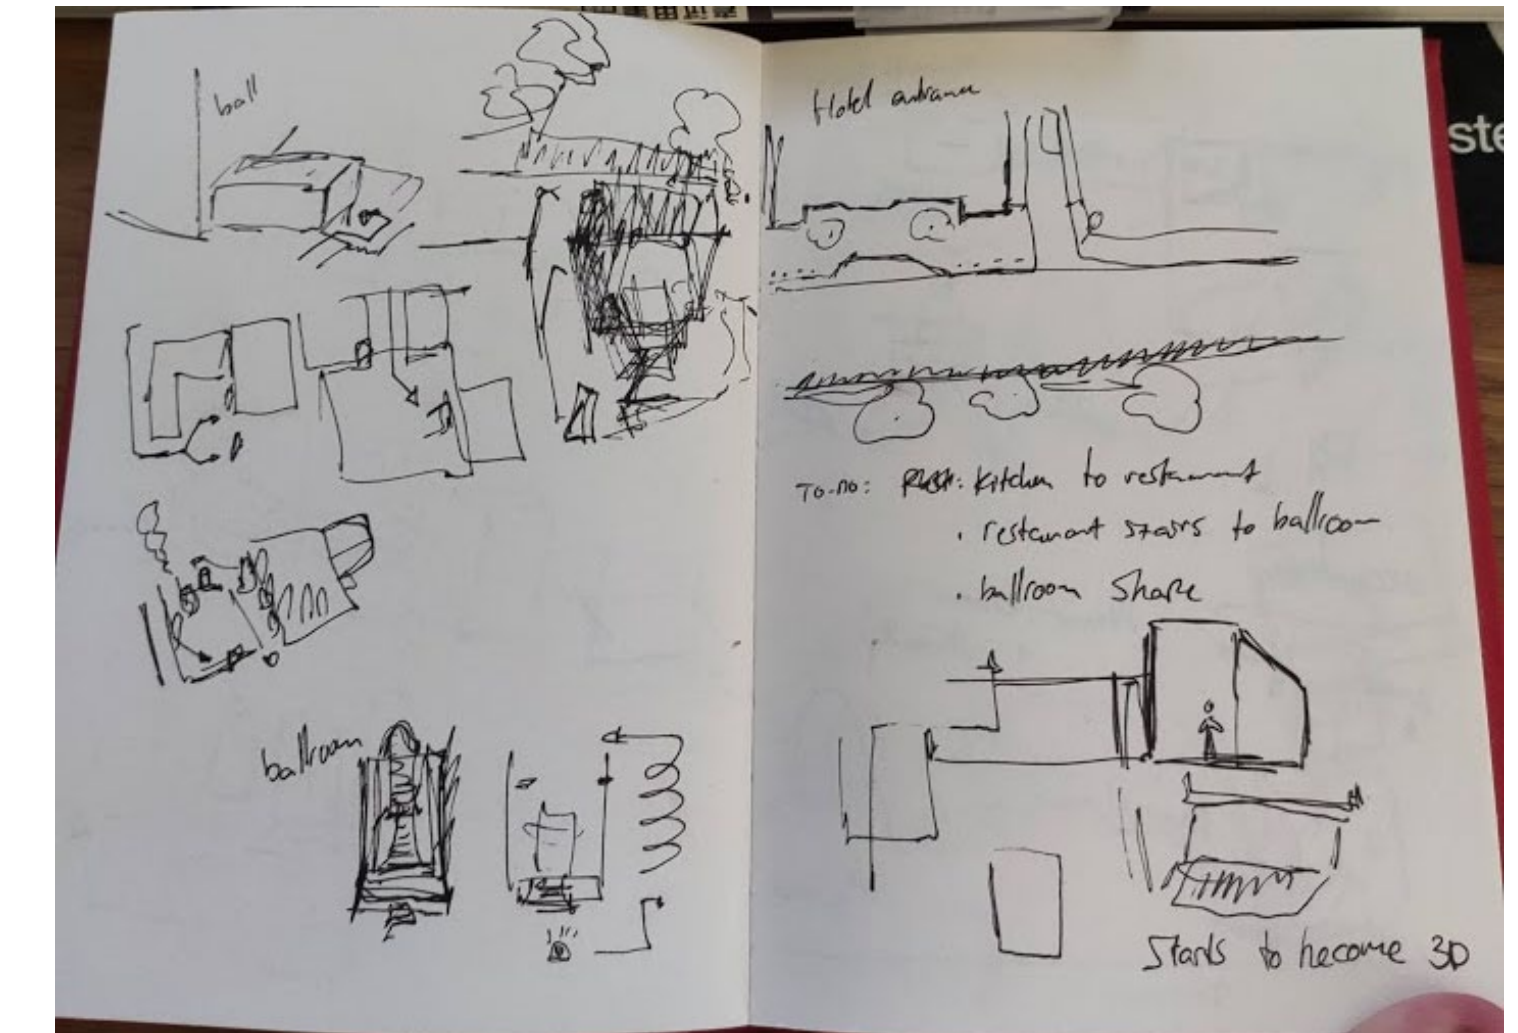 ball
Hotel entrance
To-Do: kitchen to restaurant
• restaurant stairs to ballroom
• ballroom shape
ballroom
Starts to become 3D
ste